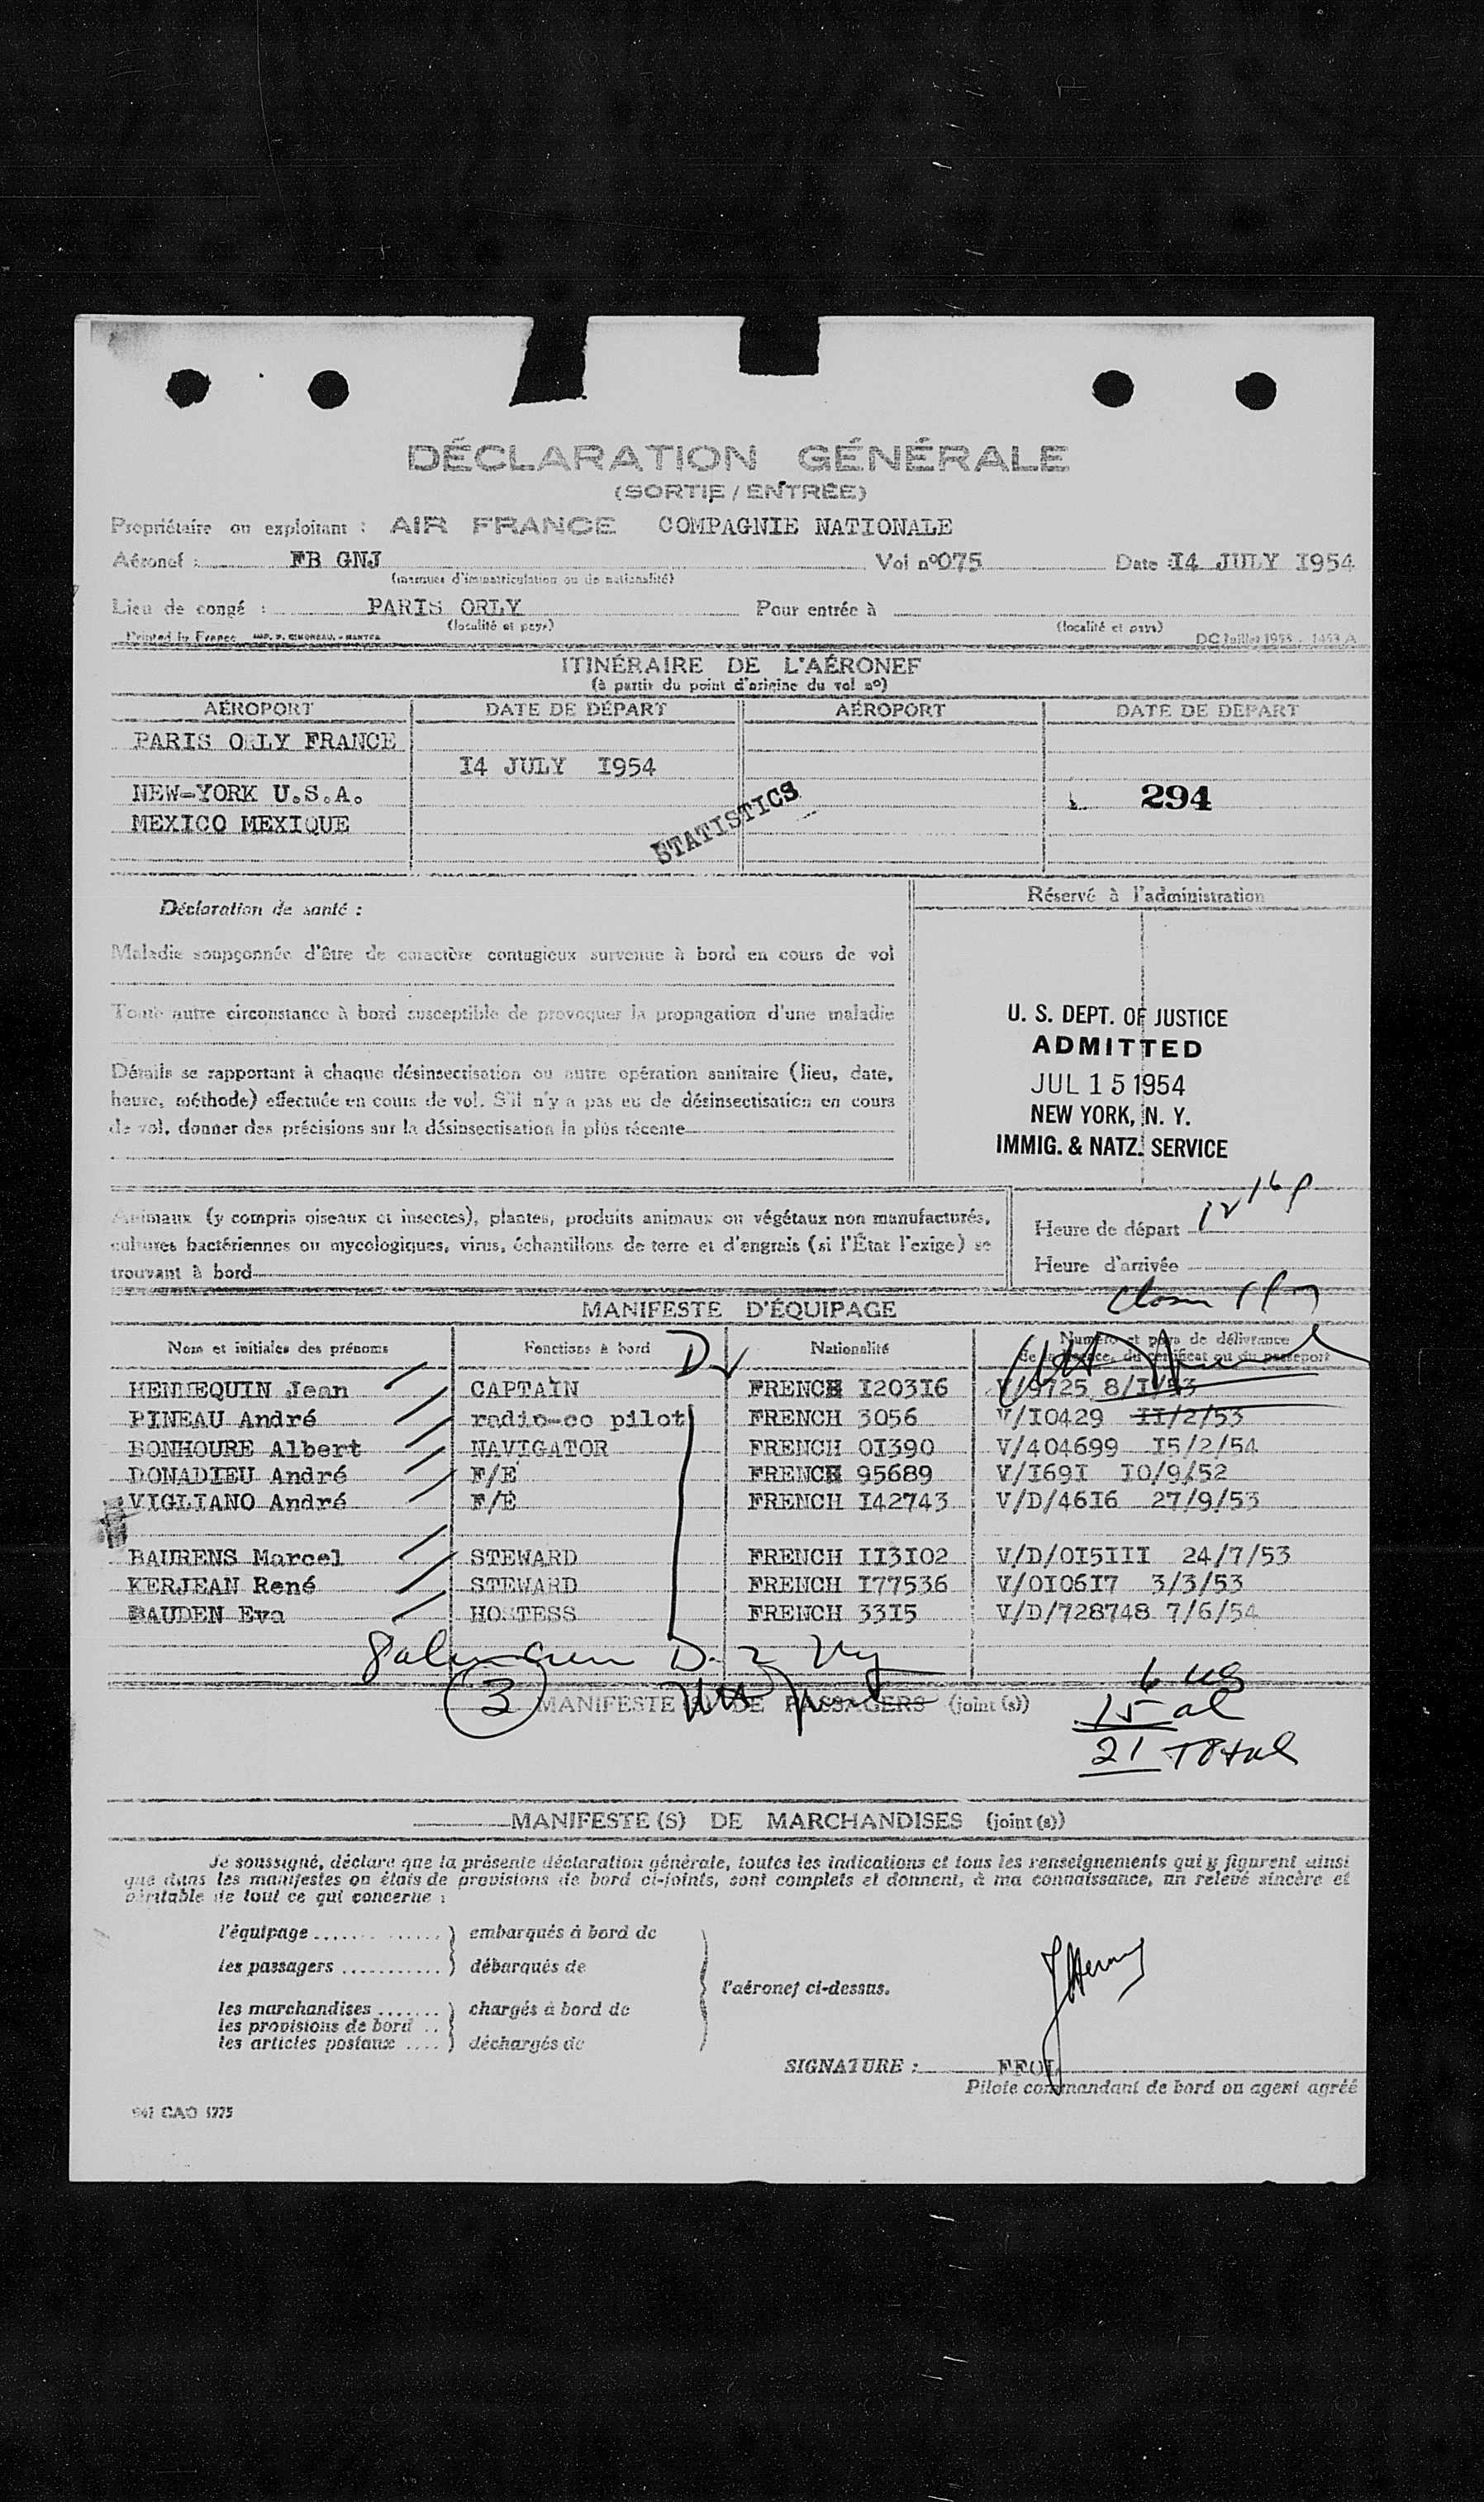 DÉCLARATION GÉNÉRALE
(SORTIE / ENTRÉE)
Propriétaire ou exploitant : AIR FRANCE COMPAGNIE NATIONALE
Aéronef : FB GNJ Vol nº 075 Date I4 JULY I954
(marques d'immatriculation ou de nationalité)
Lieu de congé : PARIS ORLY Pour entrée à
(localité et pays) (localité et pays)
Printed in France IMP. F. GIMOREAU. - NANTES DC Juillet 1953 . 1453 A
ITINÉRAIRE DE L'AÉRONEF
(à partir du point d'origine du vol nº)
AÉROPORT DATE DE DÉPART AÉROPORT DATE DE DÉPART
PARIS ORLY FRANCE
I4 JULY I954
NEW-YORK U.S.A. 294
MEXICO MEXIQUE
STATISTICS
Déclaration de santé : Réservé à l'administration
Maladie soupçonnée d'être de caractère contagieux survenue à bord en cours de vol
Toute autre circonstance à bord susceptible de provoquer la propagation d'une maladie
U. S. DEPT. OF JUSTICE
ADMITTED
JUL 15 1954
NEW YORK, N. Y.
IMMIG. & NATZ. SERVICE
Détails se rapportant à chaque désinsectisation ou autre opération sanitaire (lieu, date,
heure, méthode) effectuée en cours de vol. S'il n'y a pas eu de désinsectisation en cours
de vol, donner des précisions sur la désinsectisation la plus récente
Animaux (y compris oiseaux et insectes), plantes, produits animaux ou végétaux non manufacturés,
cultures bactériennes ou mycologiques, virus, échantillons de terre et d'engrais (si l'État l'exige) se
trouvant à bord
Heure de départ 12 16 p
Heure d'arrivée
MANIFESTE D'ÉQUIPAGE
Nom et initiales des prénoms Fonctions à bord Nationalité Numéro et pays de délivrance
de la licence, du certificat ou du passeport
HENNEQUIN Jean CAPTAIN FRENCH I203I6 V/9725 8/I/53
PINEAU André radio-co pilot FRENCH 3056 V/I0429 II/2/53
BONHOURE Albert NAVIGATOR FRENCH 0I390 V/404699 I5/2/54
DONADIEU André F/E FRENCH 95689 V/I69I I0/9/52
VIGLIANO André F/E FRENCH I42743 V/D/46I6 27/9/53
BAURENS Marcel STEWARD FRENCH II3I02 V/D/0I5III 24/7/53
KERJEAN René STEWARD FRENCH I77536 V/0I06I7 3/3/53
BAUDEN Eva HOSTESS FRENCH 33I5 V/D/728748 7/6/54
3 MANIFESTE (S) DE PASSAGERS (joint (s))
6 US
15 al
21 Total
MANIFESTE (S) DE MARCHANDISES (joint (s))
Je soussigné, déclare que la présente déclaration générale, toutes les indications et tous les renseignements qui y figurent ainsi
que dans les manifestes ou états de provisions de bord ci-joints, sont complets et donnent, à ma connaissance, un relevé sincère et
véritable de tout ce qui concerne :
l'équipage ............ ) embarqués à bord de
les passagers ........... ) débarqués de
l'aéronef ci-dessus.
les marchandises ....... ) chargés à bord de
les provisions de bord ..
les articles postaux .... ) déchargés de
SIGNATURE :
Pilote commandant de bord ou agent agréé